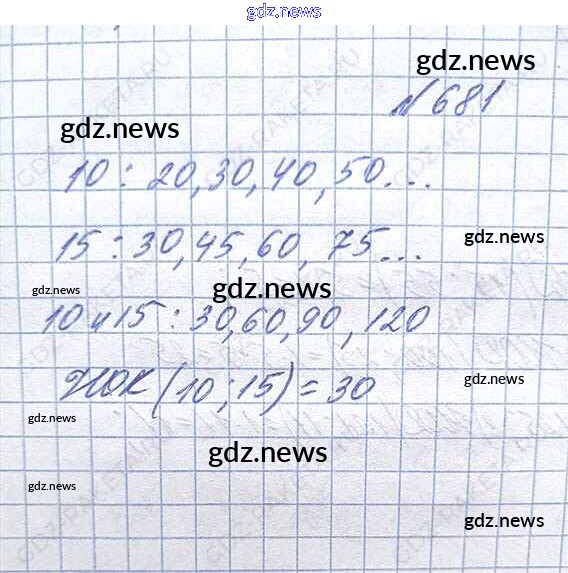 gdz.news
gdz.news
№681
gdz.news
10: 20,30,40,50...
15: 30,45,60, 75...
gdz.news
gdz.news
gdz.news
10 и 15: 30,60,90,120
НОК(10;15)=30
gdz.news
gdz.news
gdz.news
gdz.news
gdz.news